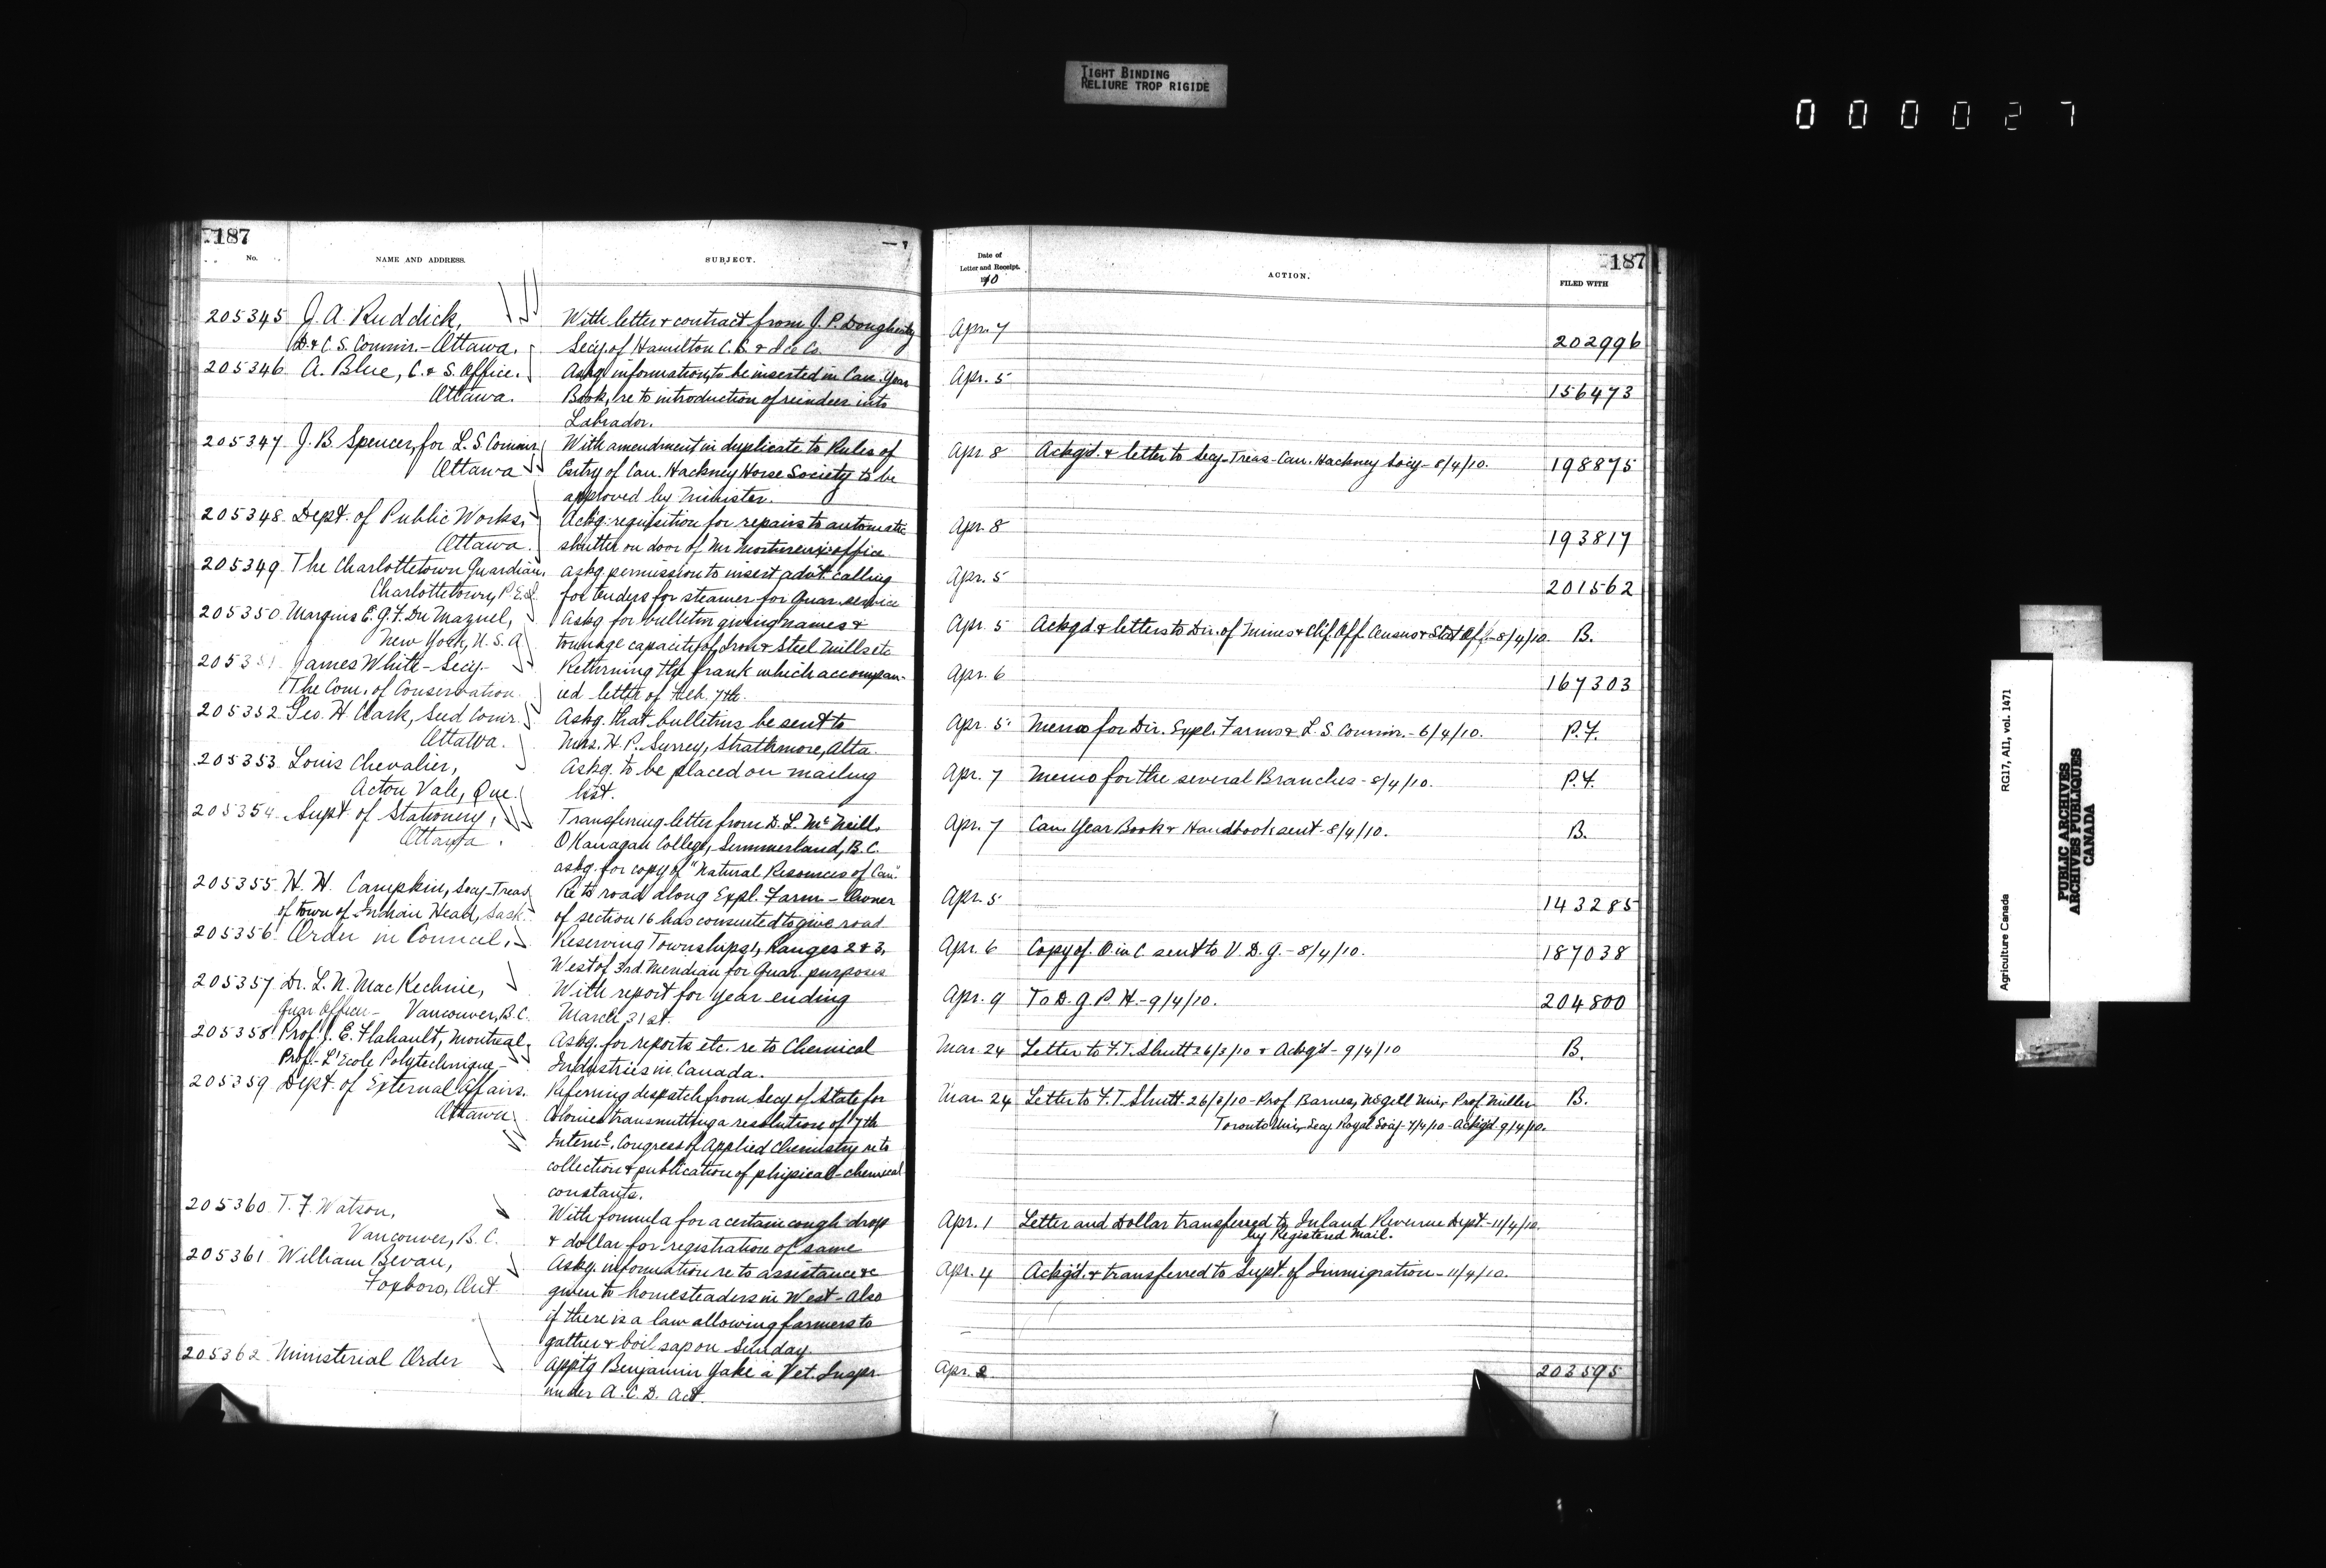 TIGHT BINDING
RELIURE TROP RIGIDE
000027
187
No.
NAME AND ADDRESS.
SUBJECT.
205345 J. A. Ruddick, With letter & contract from J. P. Dougherty
D. & C. S. Commr. - Ottawa. Secy. of Hamilton C. S. & Ice Co.
205346 A. Blue, C. & S. Office. Askg. information, to be inserted in Can. Year
Ottawa. Book, re to introduction of reindeer into
Labrador.
205347 J. B. Spencer, for L. S. Commr. With amendment in duplicate to Rules of
Ottawa Entry of Can. Hackney Horse Society to be
approved by Minister.
205348 Dept. of Public Works, Ackg. requisition for repairs to automatic
Ottawa. shutter on door of Mr office
205349 The Charlottetown Guardian, Askg. permission to insert advt. calling
Charlottetown, P.E.I. for tenders for steamer for Quar. service
205350 Marquis E. G. F. Du Mazuel, Askg. for bulletin giving names &
New York, U.S.A. tonnage capacity of Iron & Steel Mills etc
205351 James White - Secy. Returning the frank which accompan-
The Com. of Conservation ied letter of Feb. 7th.
205352 Geo. H. Clark, Seed Comr. Askg. that bulletins be sent to
Ottawa. Mrs. H. P. Surrey, Strathmore, Alta
205353 Louis Chevalier, Askg. to be placed on mailing
Acton Vale, Que. list.
205354 Supt. of Stationery, Transferring letter from D. L. McNeill
Ottawa. Okanagan College, Summerland, B.C.
askg. for copy of "Natural Resources of Can."
205355 H. H. Campkin, Secy-Treas Re to road along Expl. Farm - Owner
of town of Indian Head, Sask. of section 16 has consented to give road
205356 Order in Council, Reserving Townships 1, Ranges 2 & 3,
West of 3rd. Meridian for Quar. purposes
205357 Dr. L. N. MacKechnie, With report for year ending
Quar Officer - Vancouver, B.C. March 31st.
205358 Prof. J. E. Flahault, Montreal, Askg. for reports etc. re to Chemical
Prof. - L'Ecole Polytechnique - Industries in Canada.
205359 Dept. of External Affairs. Referring despatch from Secy of State for
Ottawa Colonies transmitting a resolution of 7th
Internl. Congress of Applied Chemistry re to
collection & publication of phisical-chemical
constants.
205360 T. F. Watson, With formula for a certain cough drop
Vancouver, B.C. & dollar for registration of same
205361 William Bevan, Askg. information re to assistance &c
Foxboro, Ont. given to homesteaders in West - Also
if there is a law allowing farmers to
gather & boil sap on Sunday.
205362 Ministerial Order Apptg Benjamin Yake a Vet. Inspr.
under A. C. D. Act.
187
Date of
Letter and Receipt.
1910
ACTION.
FILED WITH
Apr. 7 202996
Apr. 5 156473
Apr. 8 Ackgd. & letter to Secy-Treas-Can. Hackney Socy - 8/4/10. 198875
Apr. 8 193817
Apr. 5 201562
Apr. 5 Ackgd & letters to Dir. of Mines & Chf. Off. Census & Stat Off. - 8/4/10. B.
Apr. 6 167303
Apr. 5 Memo for Dir. Expl. Farms & L. S. Commr. - 6/4/10. P.F.
Apr. 7 Memo for the several Branches - 8/4/10. P.F.
Apr. 7 Can. Year Book & Handbook sent - 8/4/10. B.
Apr. 5 143285
Apr. 6 Copy of O. in C. sent to V. D. G. - 8/4/10. 187038
Apr. 9 To D. G. P. H. - 9/4/10. 204800
Mar. 24 Letter to F. T. Shutt 26/3/10 & Ackg'd - 9/4/10 B.
Mar. 24 Letter to F. T. Shutt. 26/3/10 - Prof Barnes, McGill Univ, Prof. Miller B.
Toronto Univ, Secy Royal Socy - 7/4/10 - Ackg'd 9/4/10.
Apr. 1 Letter and Dollar transferred to Inland Revenue Dept - 11/4/10.
by Registered Mail.
Apr. 4 Ackg'd. & transferred to Supt. of Immigration - 11/4/10.
Apr. 2 203595
Agriculture Canada RG17, AII, vol. 1471
PUBLIC ARCHIVES
ARCHIVES PUBLIQUES
CANADA